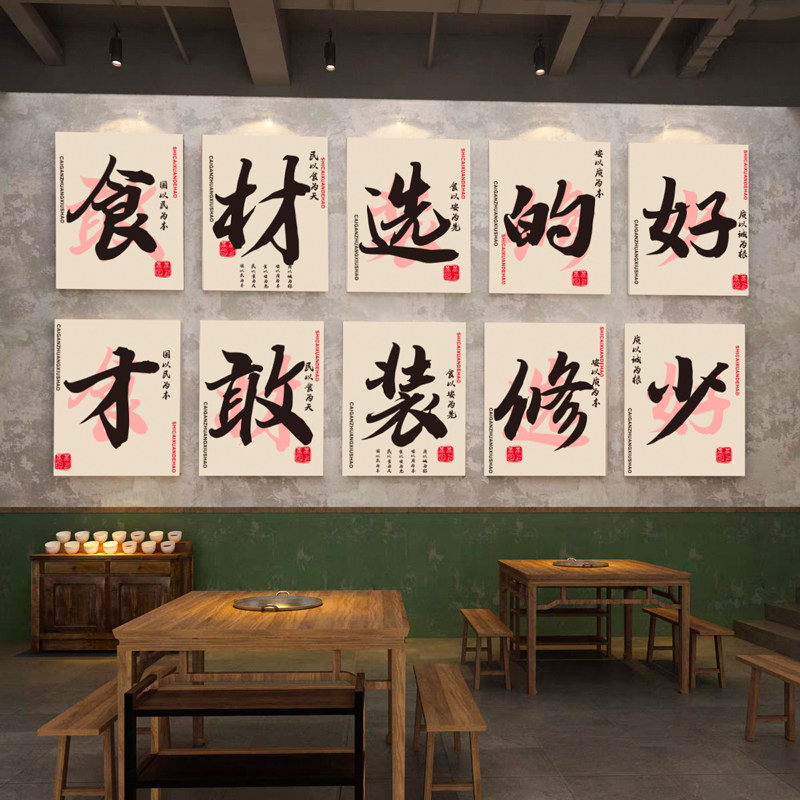 食
CAIGANZHUANGXIUSHAO
SHICAIXUANDEHAO
国以民为本
材
CAIGANZHUANGXIUSHAO
SHICAIXUANDEHAO
民以食为天
选
CAIGANZHUANGXIUSHAO
SHICAIXUANDEHAO
食以安为先
的
CAIGANZHUANGXIUSHAO
SHICAIXUANDEHAO
安以质为本
好
CAIGANZHUANGXIUSHAO
SHICAIXUANDEHAO
质以诚为根
才
CAIGANZHUANGXIUSHAO
SHICAIXUANDEHAO
国以民为本
敢
CAIGANZHUANGXIUSHAO
SHICAIXUANDEHAO
民以食为天
装
CAIGANZHUANGXIUSHAO
SHICAIXUANDEHAO
食以安为先
修
CAIGANZHUANGXIUSHAO
SHICAIXUANDEHAO
安以质为本
少
CAIGANZHUANGXIUSHAO
SHICAIXUANDEHAO
质以诚为根